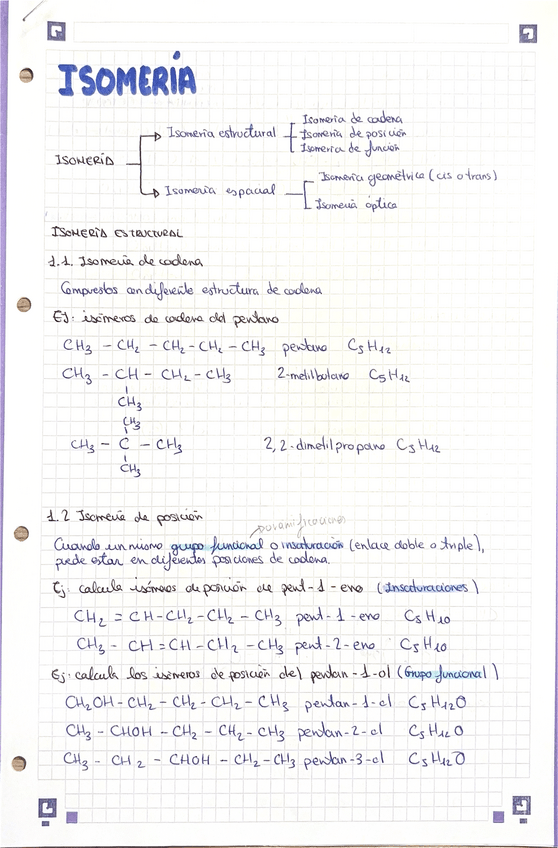 ISOMERÍA
Isomería de cadena
Isomería estructural
Isomería de posición
Isomería de función
ISOMERÍA
Isomería geométrica (cis o trans)
Isomería espacial
Isomería óptica
ISOMERÍA ESTRUCTURAL
1.1. Isomería de cadena
Compuestos con diferente estructura de cadena
EJ: isómeros de cadena del pentano
CH3 - CH2 - CH2 - CH2 - CH3 pentano C5H12
CH3 - CH - CH2 - CH3 2-metilbutano C5H12
CH3
CH3
CH3 - C - CH3 2,2-dimetilpropano C5H12
CH3
1.2 Isomería de posición
o ramificaciones
Cuando un mismo grupo funcional o insaturación (enlace doble o triple),
puede estar en diferentes posiciones de cadena.
Ej: calcula isómeros de posición de pent-1-eno (Insaturaciones)
CH2 = CH-CH2-CH2-CH3 pent-1-eno C5H10
CH3 - CH=CH-CH2-CH3 pent-2-eno C5H10
Ej: calcula los isómeros de posición del pentan-1-ol (Grupo funcional)
CH2OH - CH2 - CH2 - CH2 - CH3 pentan-1-ol C5H12O
CH3 - CHOH - CH2 - CH2 - CH3 pentan-2-ol C5H12O
CH3 - CH2 - CHOH - CH2 - CH3 pentan-3-ol C5H12O